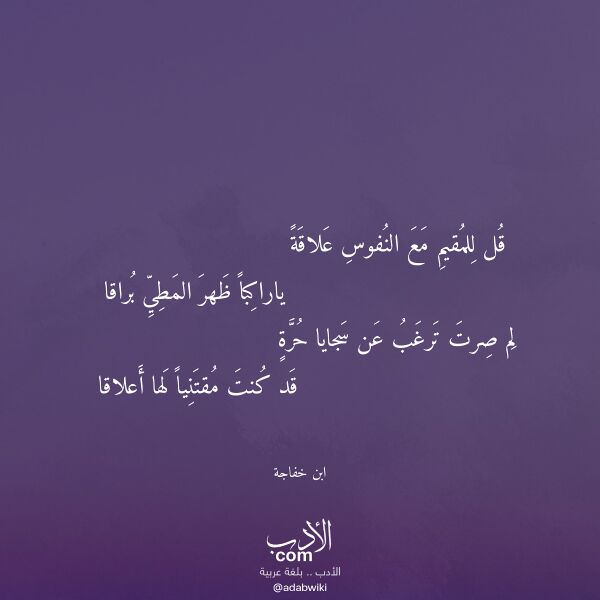 قُل لِلمُقيمِ مَعَ النُفوسِ عَلاقَةً
ياراكِباً ظَهرَ المَطِيِّ بُراقا
لِم صِرتَ تَرغَبُ عَن سَجايا حُرَّةٍ
قَد كُنتَ مُقتَنِياً لَها أَعلاقا
ابن خفاجة
الأدب
com
الأدب .. بلغة عربية
@adabwiki